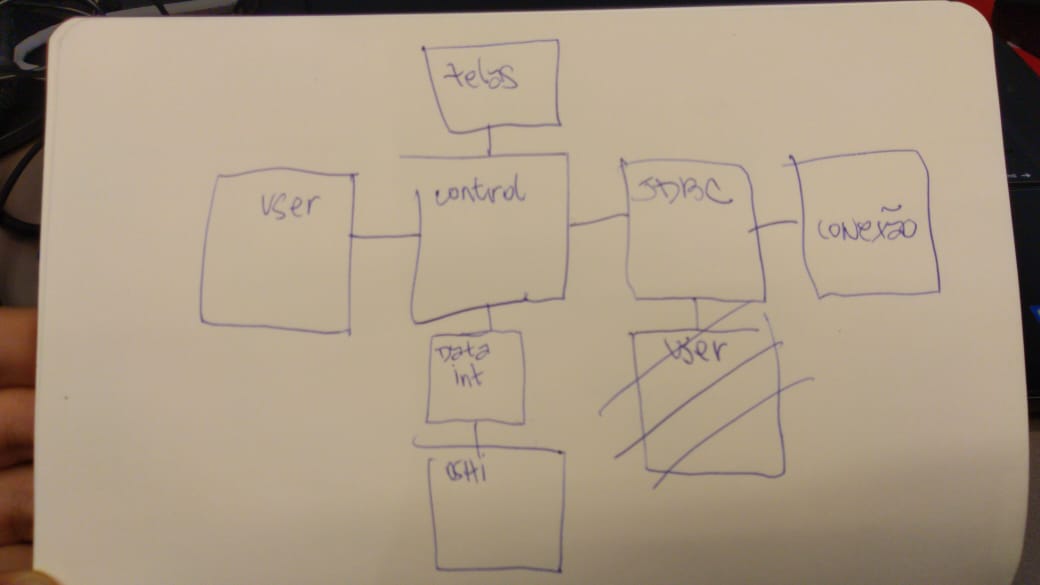 telas
user
control
JDBC
conexão
Data
int
user
OSHi